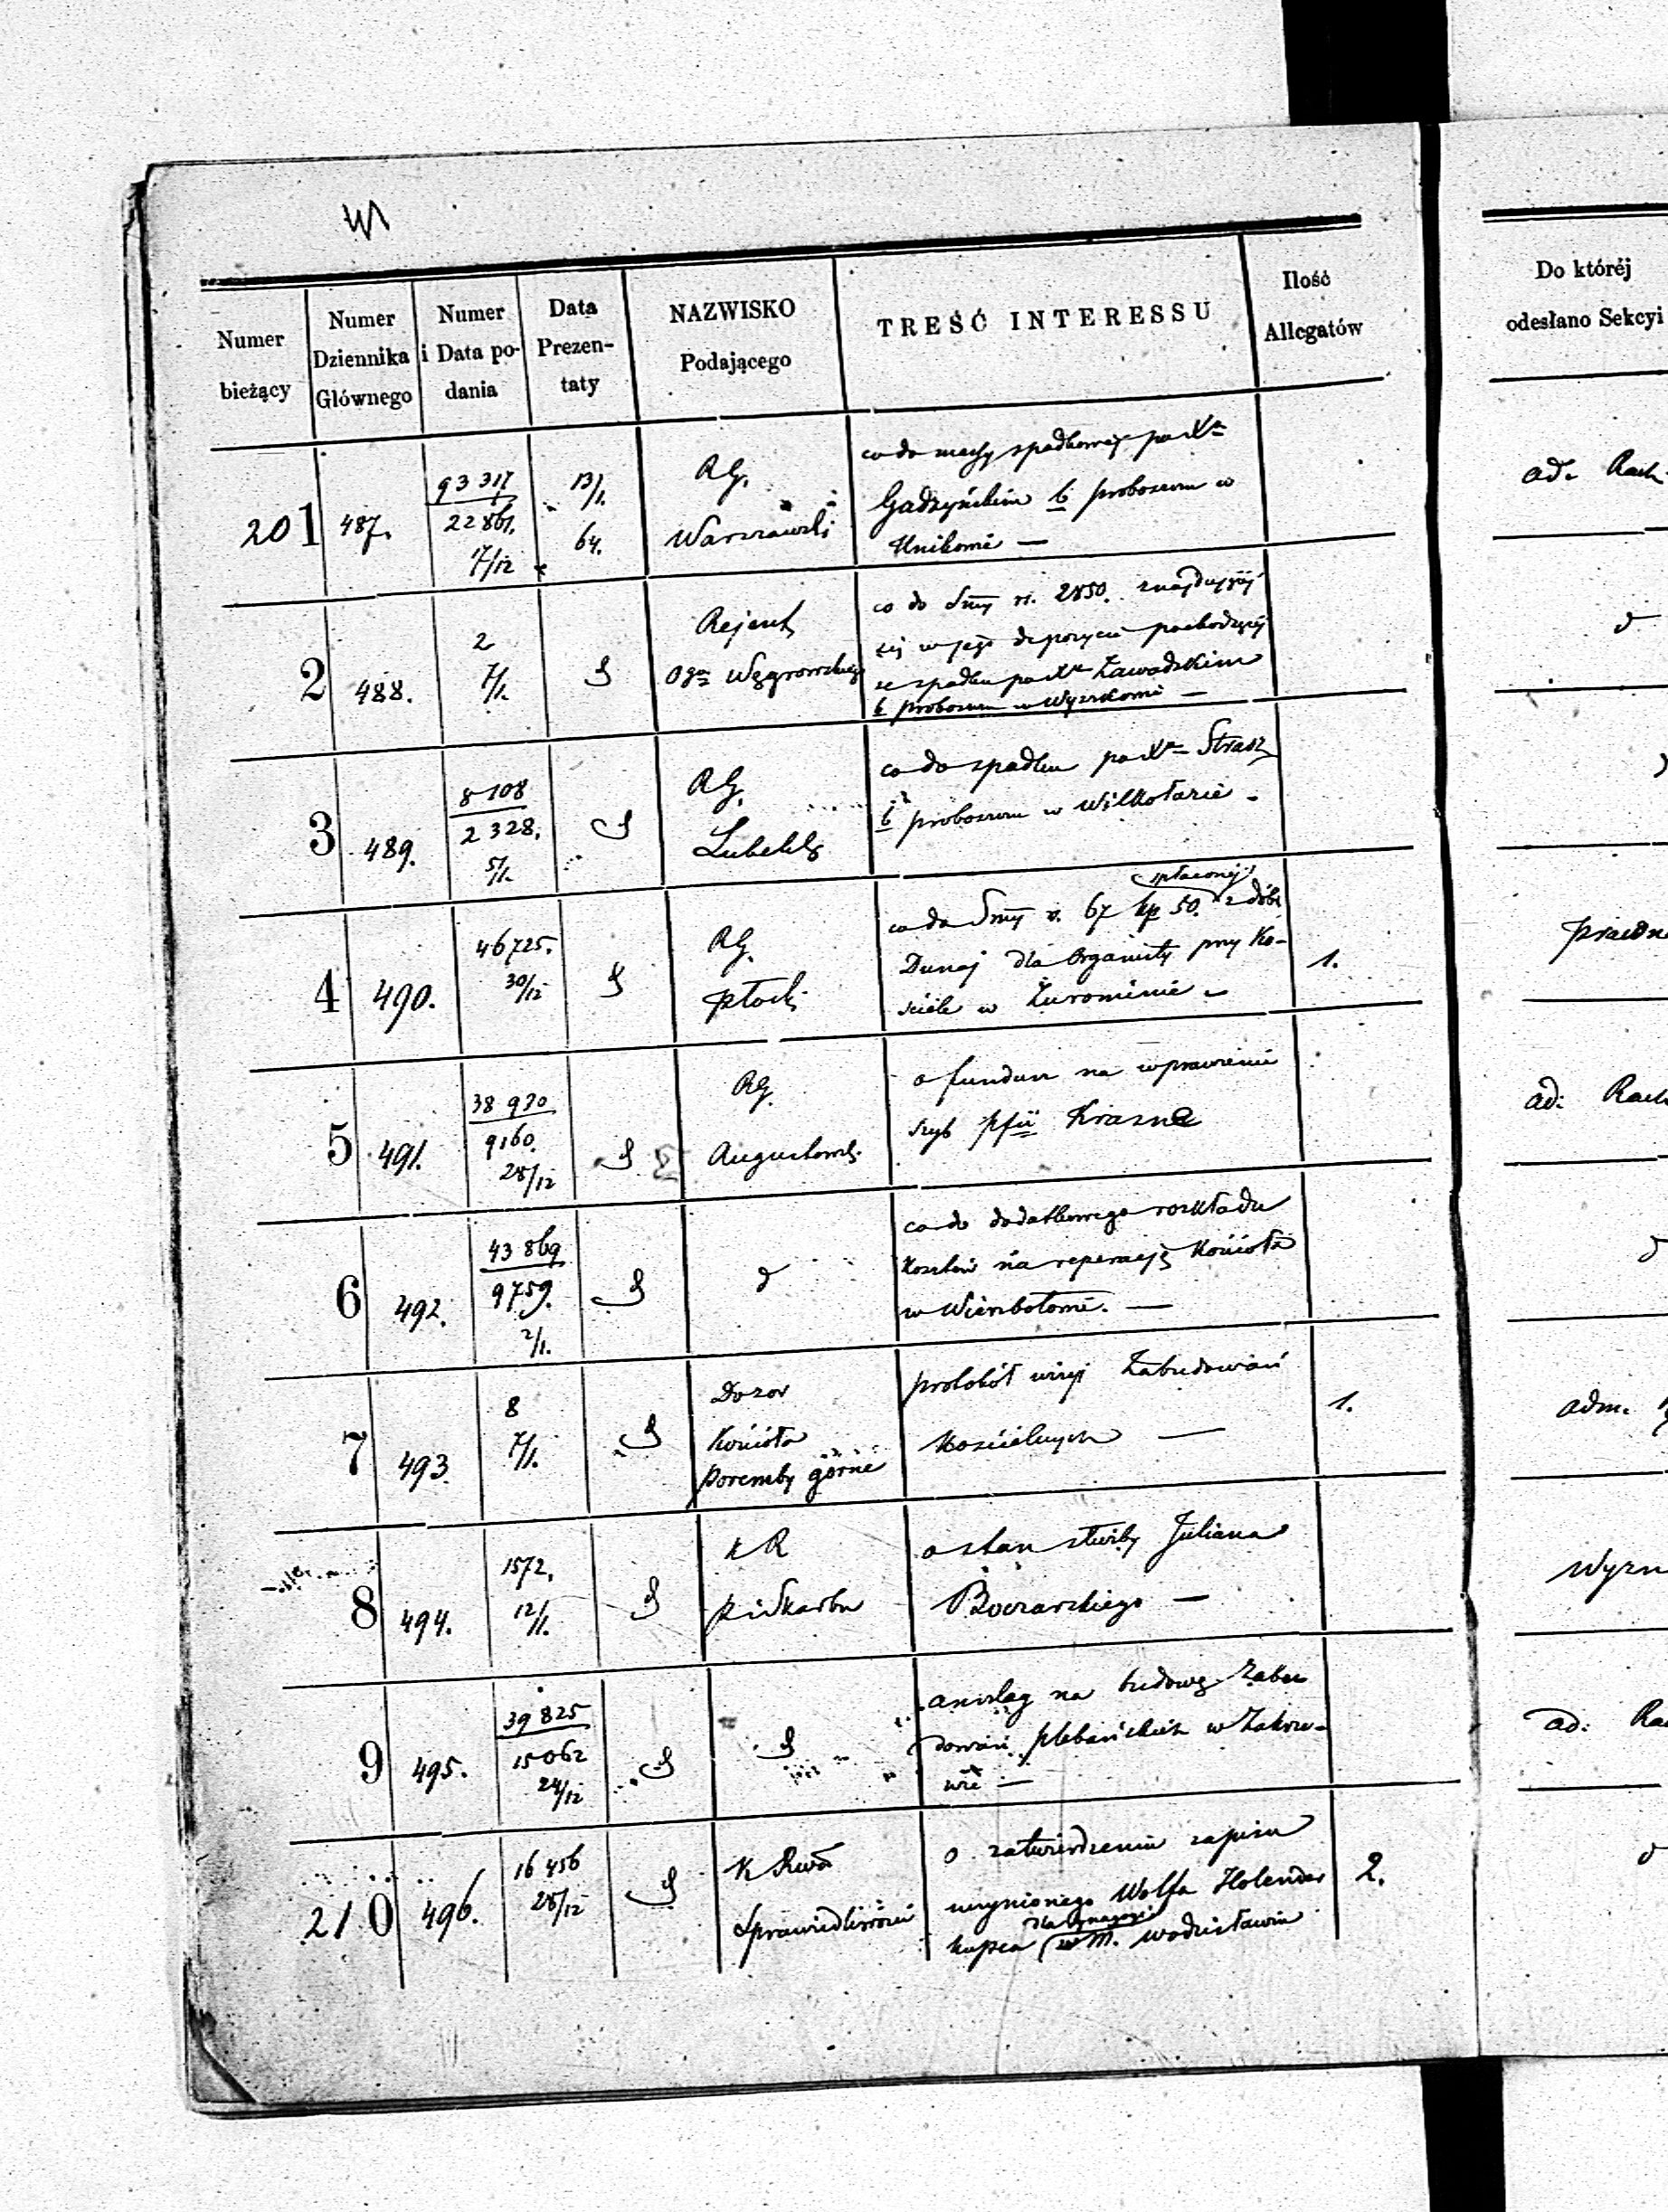 Numer
bieżący
Numer
Dziennika
Głównego
Numer
i Data po-
dania
Data
Prezen-
taty
NAZWISKO
Podającego
TREŚĆ INTERESSU
Ilość
Allegatów
Do któréj
odesłano Sekcyi
201
487.
93 317
22861.
17/12
13/1.
64.
RG.
Warszawski
co do massy spadkowej po Xu
Gadzyńskim b proboszczu w
Unikowie —
ad. Rach.
2
488.
2
7/1.
Rejent
Ogu Węgrowskiego
co do Smy rs. 2850. znajdującej
się w jego depozycie pochodzącej
ze spadku po Xu Zawadzkim
b proboszczu w Wyszkowie —
3
489.
8108
2328.
5/1.
RG.
Lubelski
co do spadku po Xu Strasz
b proboszczu w Wilkołazie -
4
490.
46725.
30/12
RG.
Płocki
spłaconej
co do Smy rs. 67 kp 50. z dóbr
Dunaj dla Organisty przy Ko-
ściele w Żurominie -
1.
5
491.
38 930
9160.
28/12
RG.
Augustowski
o fundusz na wprawienie
szyb pfii Krasne
ad: Rach
6
492.
43 869
9759.
2/1.
d
co do dodatkowego rozkładu
kosztów na reperacyę Kościoła
w Wierzbołowie. —
7
493.
8
7/1.
Dozor
Kościoła
Poremby górne
protokół wizyi Zabudowań
Kościelnych —
1.
adm.
8
494.
1572.
12/1.
K R
PiSkarbu
o stan służby Juliana
Boczarskiego —
Wyzn
9
495.
39 825
15062
24/12
anszlag na budowę Zabu
dowań plebańskich w Zakrze-
wie —
ad:
210
496.
16 456
28/12
K Rwa
Sprawiedliwości
o zatwierdzenie zapisu
uczynionego Wolfa Holender
dla synagogi
kupca w M. Wodzisławiu
2.